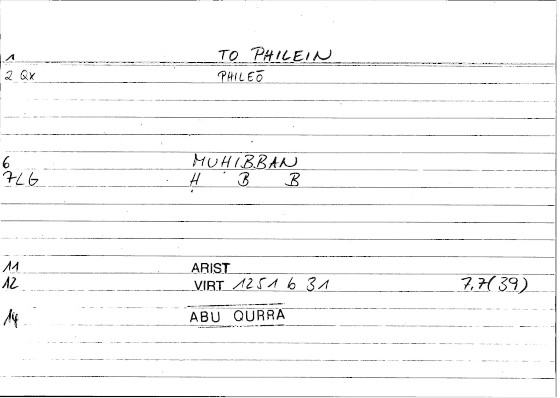 1 TO PHILEIN
2 QX PHILEŌ
6 MUHIBBAN
7LG Ḥ B B
11 ARIST
12 VIRT 1251 b 31 7.7(39)
14 ABU QURRA